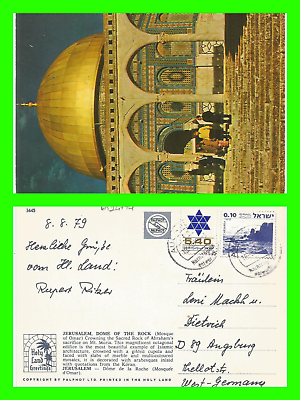 3645
8. 8. 79
Herzliche Grüße
vom Hl. Land!
Rupert Ritzer
Holy
Land
Greetings
JERUSALEM, DOME OF THE ROCK (Mosque
of Omar) Crowning the Sacred Rock of Abraham's
sacrifice on Mt. Moria. This magnificent octagonal
edifice is the most beautiful example of Islamic
architecture, crowned with a gilded cupola and
faced with slabs of marble and multicoloured
mosaics, it is decorated with arabesques inlaid
with quotations from the Koran.
JERUSALEM — Dôme de la Roche (Mosquée
d'Omar).
COPYRIGHT BY PALPHOT LTD. PRINTED IN THE HOLY LAND
5.40
0.10 ישראל
Fräulein
Leni Machh u.
Dietrich
D 89 Augsburg
West-Germany